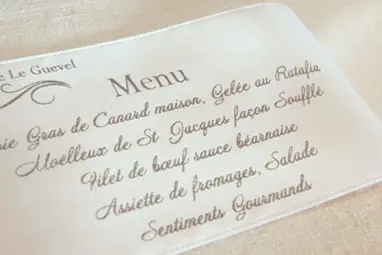 Le Guevel
Menu
Gras de Canard maison, Gelée au Ratafia
Moëlleux de St Jacques façon Soufflé
Filet de bœuf sauce béarnaise
Assiette de fromages, Salade
Sentiments Gourmands